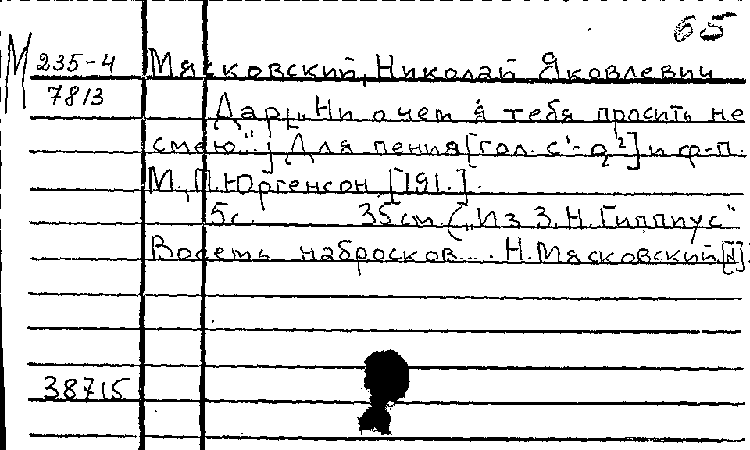 65
М 235-4 Мясковский, Николай Яковлевич
7813
Дар [„Ни о чем я тебя просить не
смею."] Для пения [гол. c¹-g²] и ф-п.
М., П. Юргенсон, [191.].
5с. 35см. („Из З.Н. Гиппиус"
Восемь набросков... Н. Мясковский
38715